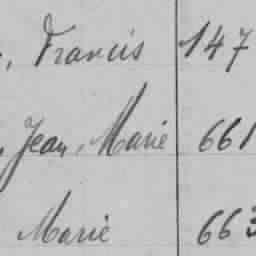 , Francis 147
, Jean, Marie 661
Marie 663